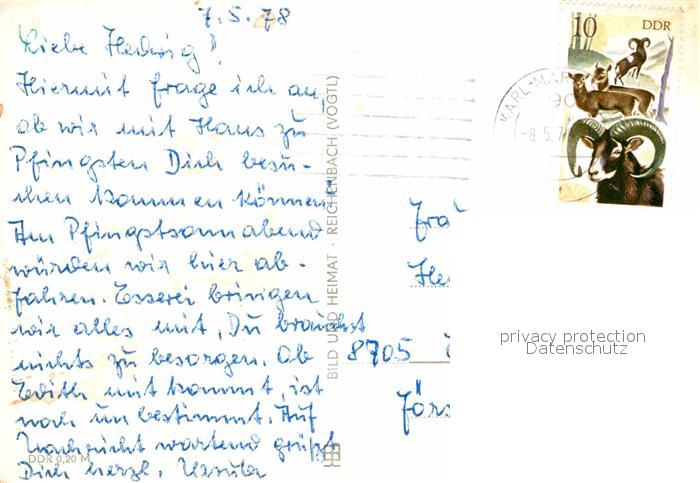 7.5.78
Liebe Hedwig!
Hiermit frage ich an,
ob wir mit Hans zu
Pfingsten Dich besu-
chen kommen können?
Am Pfingstsonnabend
würden wir hier ab-
fahren. Esserei bringen
wir alles mit, Du brauchst
nichts zu besorgen. Ob
Edith mit kommt, ist
noch unbestimmt. Auf
Nachricht wartend grüßt
Dich herzl. Ursula
DDR 0,20 M
BILD UND HEIMAT · REICHENBACH (VOGTL)
10 DDR
KARL-MAR
90
-8.5.7
Fra
He
8705
privacy protection
Datenschutz